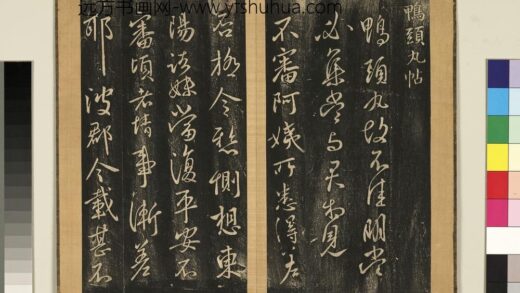 远方书画网-www.yfshuhua.com
鴨頭丸帖
鴨頭丸故不佳明當
必集當与君相見
不審阿姨所患得差
否極令懸惻想東
陽諸妹當復平安不
審頃者情事漸差
耶彼郡今載甚不